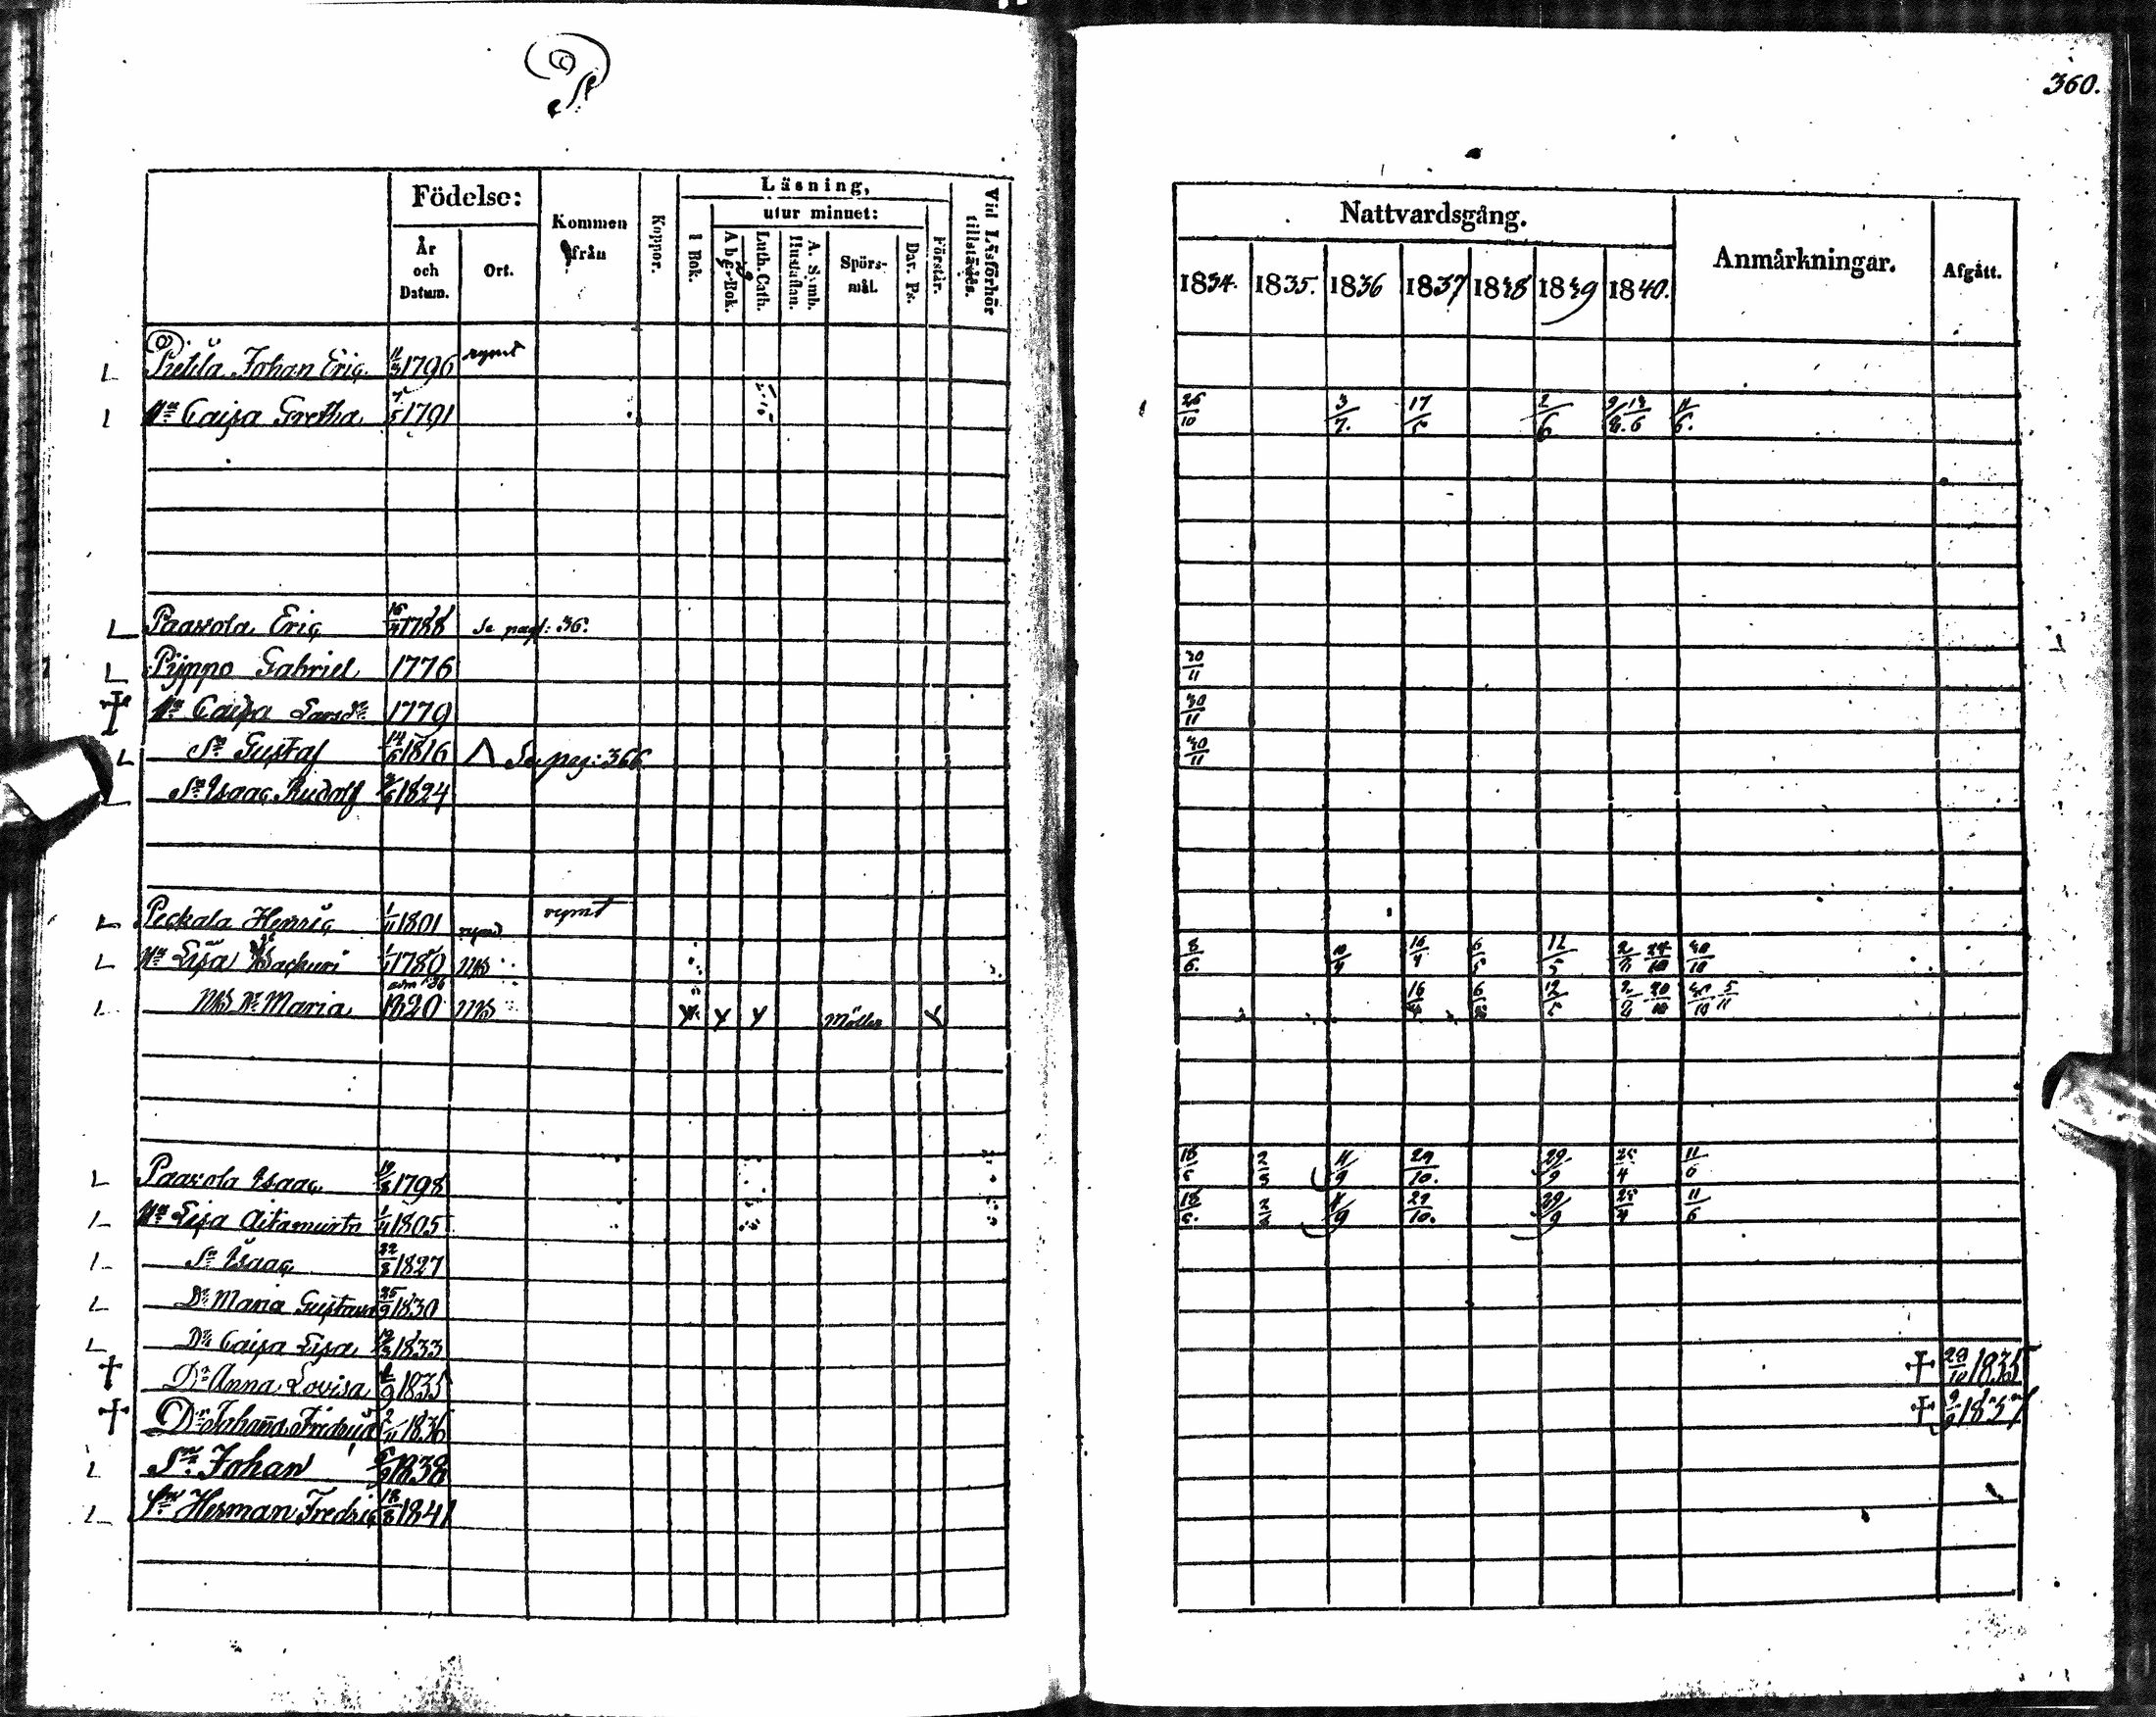 P
360.
Födelse:
Kommen från
Koppor.
Läsning,
utur minnet:
Vid Läsförhör tillstädes.
År och Datum.
Ort.
i Bok.
Abc-Bok.
Luth. Cath.
A. Symb. Hustaflan.
Spörsmål.
Dav. Ps.
Förstår.
Nattvardsgång.
Anmärkningar.
Afgått.
1834. 1835. 1836 1837 1838 1839 1840.
L Johan Eric 1796 rymt
L Hu Caisa Gretha 1791 26/10 3/7. 17/5 2/6 11/6.
L Paavola Eric 1788 Se pag: 36.
L Pijppo Gabriel 1776 30/11
† Hu Caisa Larsdr 1779 30/11
L Sn Gustaf 14/6 1816 Se pag: 366 30/11
L Sn Isaac Rudolf 1824
L Peckala Henric 1/11 1801 rymt
L Hu Lisa 1780 8/6. 10/4 16/4 6/5 12/5 30/10
L Dr Maria 1820 Y Y Y Möller Y 16/4 12/5 5/11
L Paavola Isaac 1798 18/6 2/3 11/9 29/10. 29/9 25/4 11/6
L Hu Lisa Aitamurto 1805 18/6. 2/3 11/9 29/10. 29/9 25/4 11/6
L Sn Isaac 22/8 1827
L Dr Maria Gustava 25/9 1830
L Dr Caisa Lisa 1833
† Dr Anna Lovisa 1835 † 29/10 1835
† Dr Johanna Fredrica 1836 † 1837
L Sn Johan 1838
L Sn Herman Fredric 18/8 1841